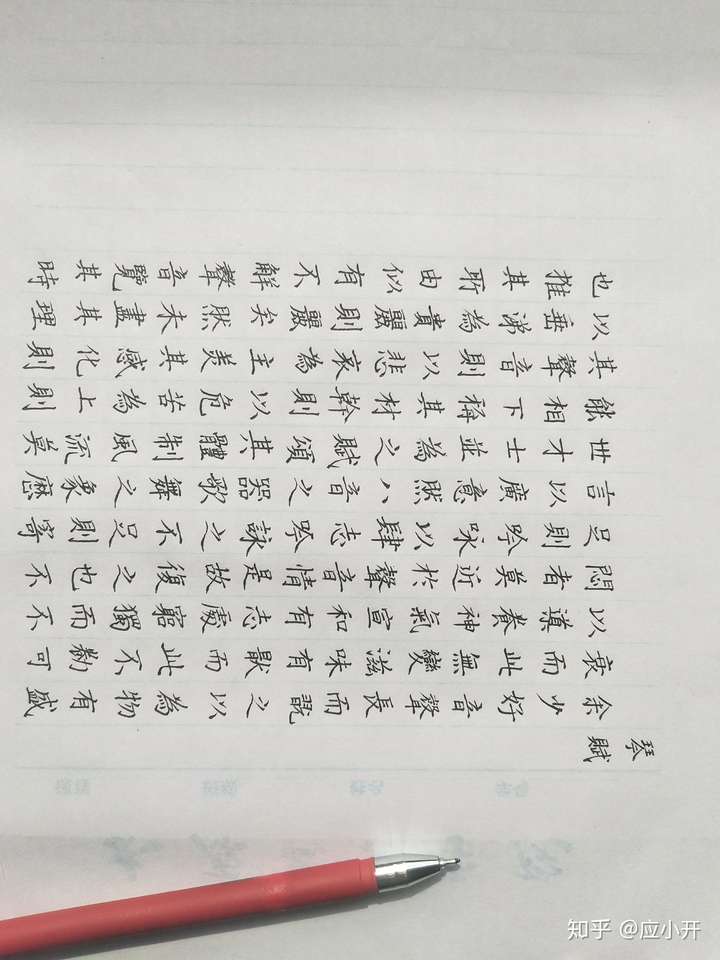 琴賦
余少好音聲長而翫之以為物有盛
衰而此無變滋味有猒而此不勌可
以導養神氣宣和有志處窮獨而不
悶者莫近於聲音情是故復之也不
足則吟咏以肆志吟詠之不足則寄
言以廣意然八音之器歌舞之象歷
世才士並為之賦頌其體制風流莫
能相下稱其材幹則以危苦為上則
其聲音則以悲哀為主美其感化則
以垂涕為貴麗則麗矣然未盡其理
也推其所由似有不解聲音覽其時
知乎 @应小开